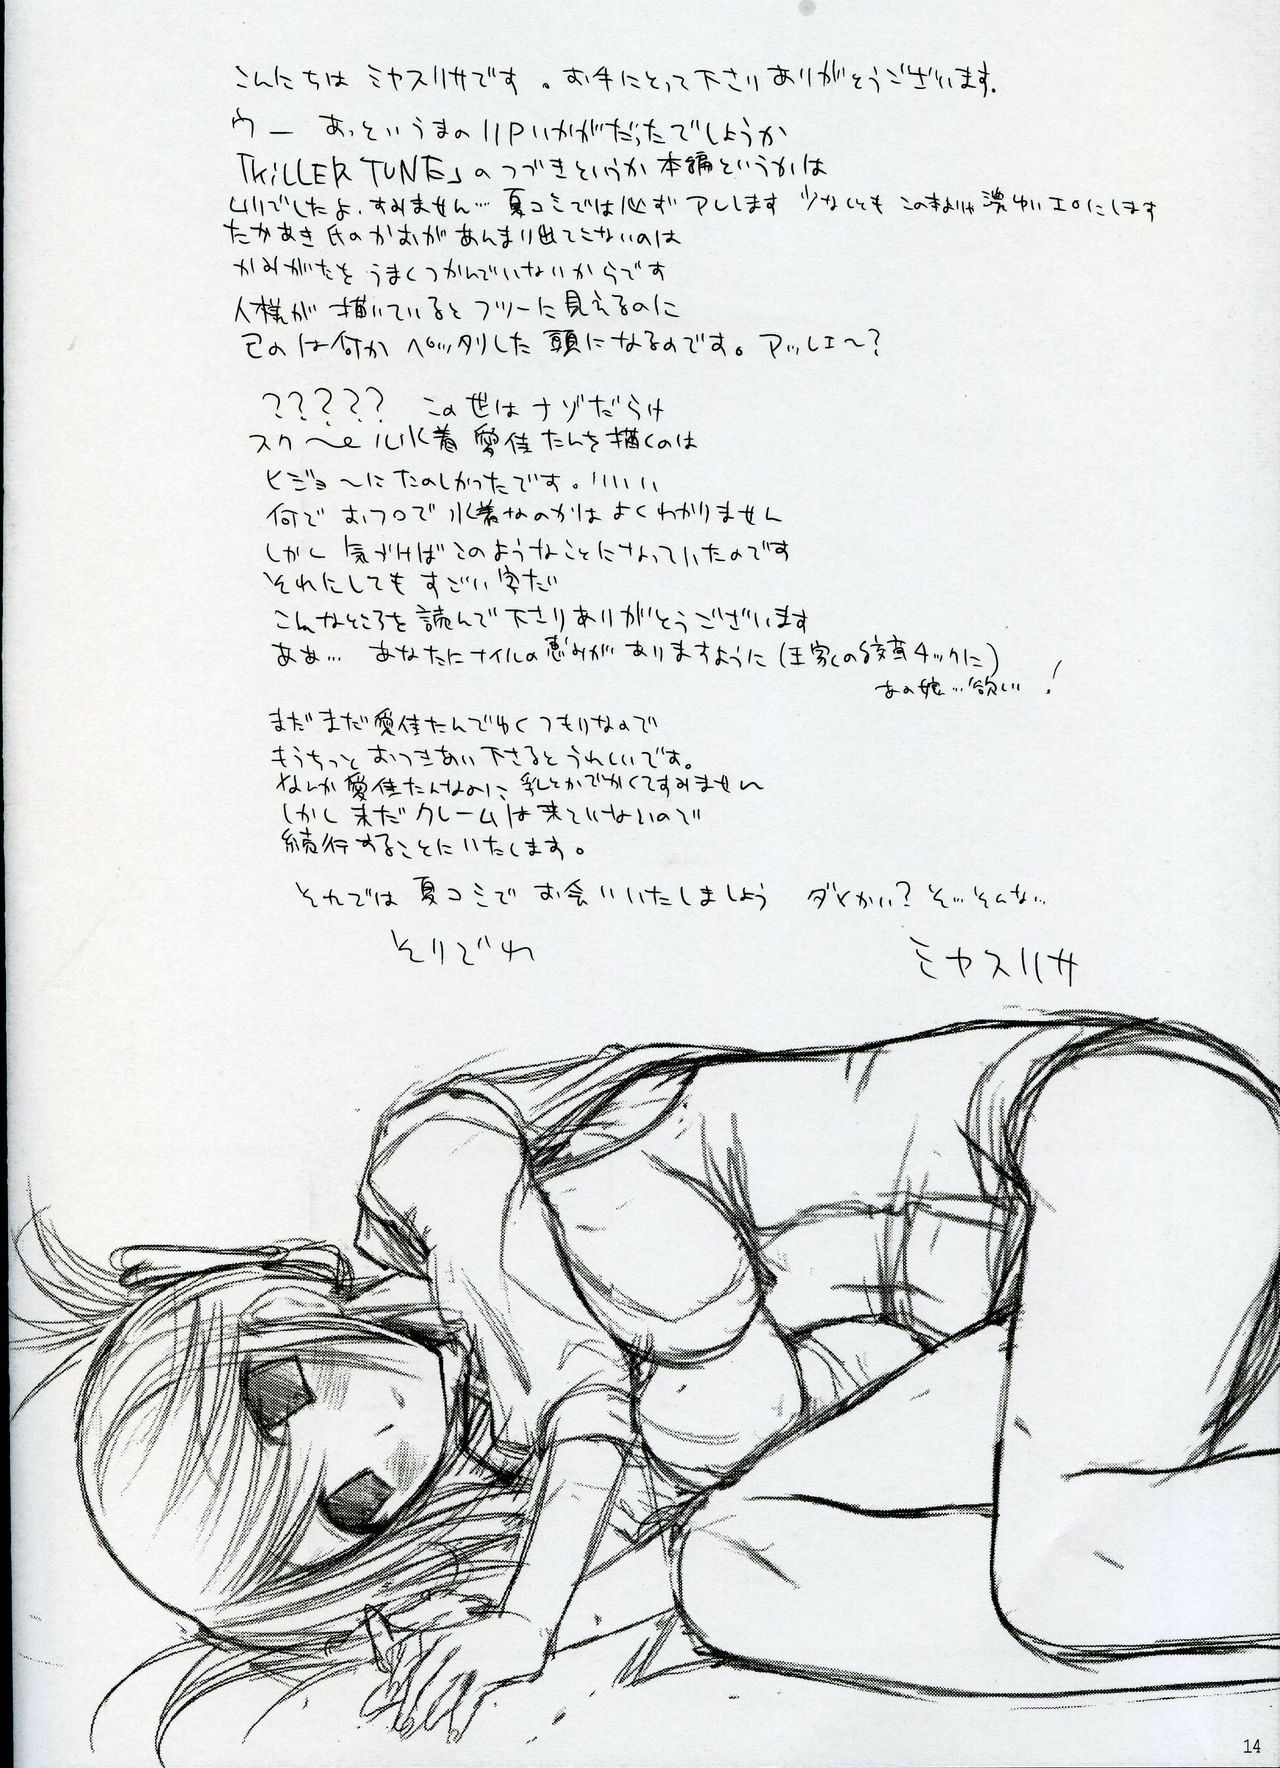 こんにちは ミヤスリサです。お手にとって下さりありがとうございます。
ウー あっというまの11Pいかがだったでしょうか
「KiLLER TUNE」のつづきというか本編というかは
ムリでしたよ、すみません… 夏コミでは必ずアレします 少なくとも この本よりは濃ゆいエロにします
たかあき氏のかおがあんまり出てこないのは
かみがたを うまくつかんでいないからです
人様が 描いていると フツーに見えるのに
己のは何か ペッタリした 頭になるのです。アッレエ〜?
????? この世はナゾだらけ
スク〜ル水着 愛佳たんを描くのは
ヒジョ〜にたのしかったです。
何で おフロで 水着なのかは よくわかりません
しかし 気づけばこのようなことになっていたのです
それにしても すごい字だ
こんなところを 読んで下さりありがとうございます
ああ… あなたにナイルの恵みが ありますように(王家の紋章チックに)
あの娘…欲しい!
まだまだ愛佳たんでゆくつもりなので
もうちっと おつきあい下さるとうれしいです。
なんか愛佳たんなのに、乳とかでかくてすみません
しかし まだクレームは来ていないので
続行することにいたします。
それでは 夏コミで お会いいたしましょう ダメかい? そ…そんな…
そりでわ
ミヤスリサ
14